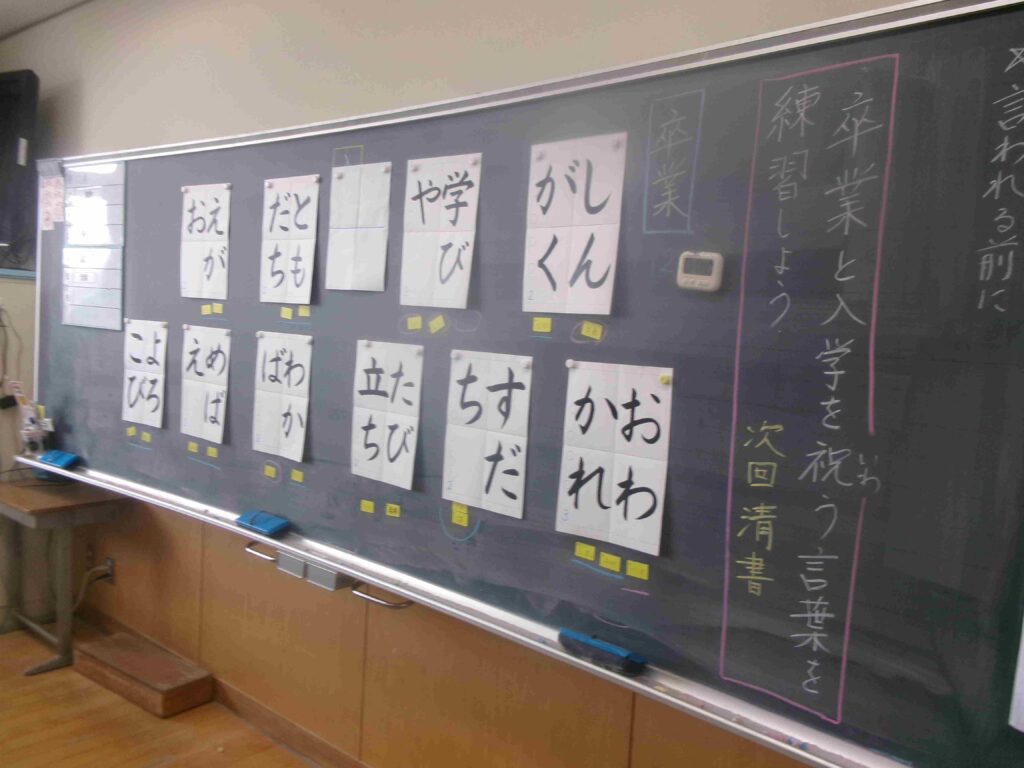 言われる前に
卒業と入学を祝う言葉を
いわ
練習しよう
次回清書
卒業
しん
がく
学び
や
とも
だち
えが
お
おわ
かれ
すだ
ち
たび
立ち
わか
ば
めば
え
よろ
こび